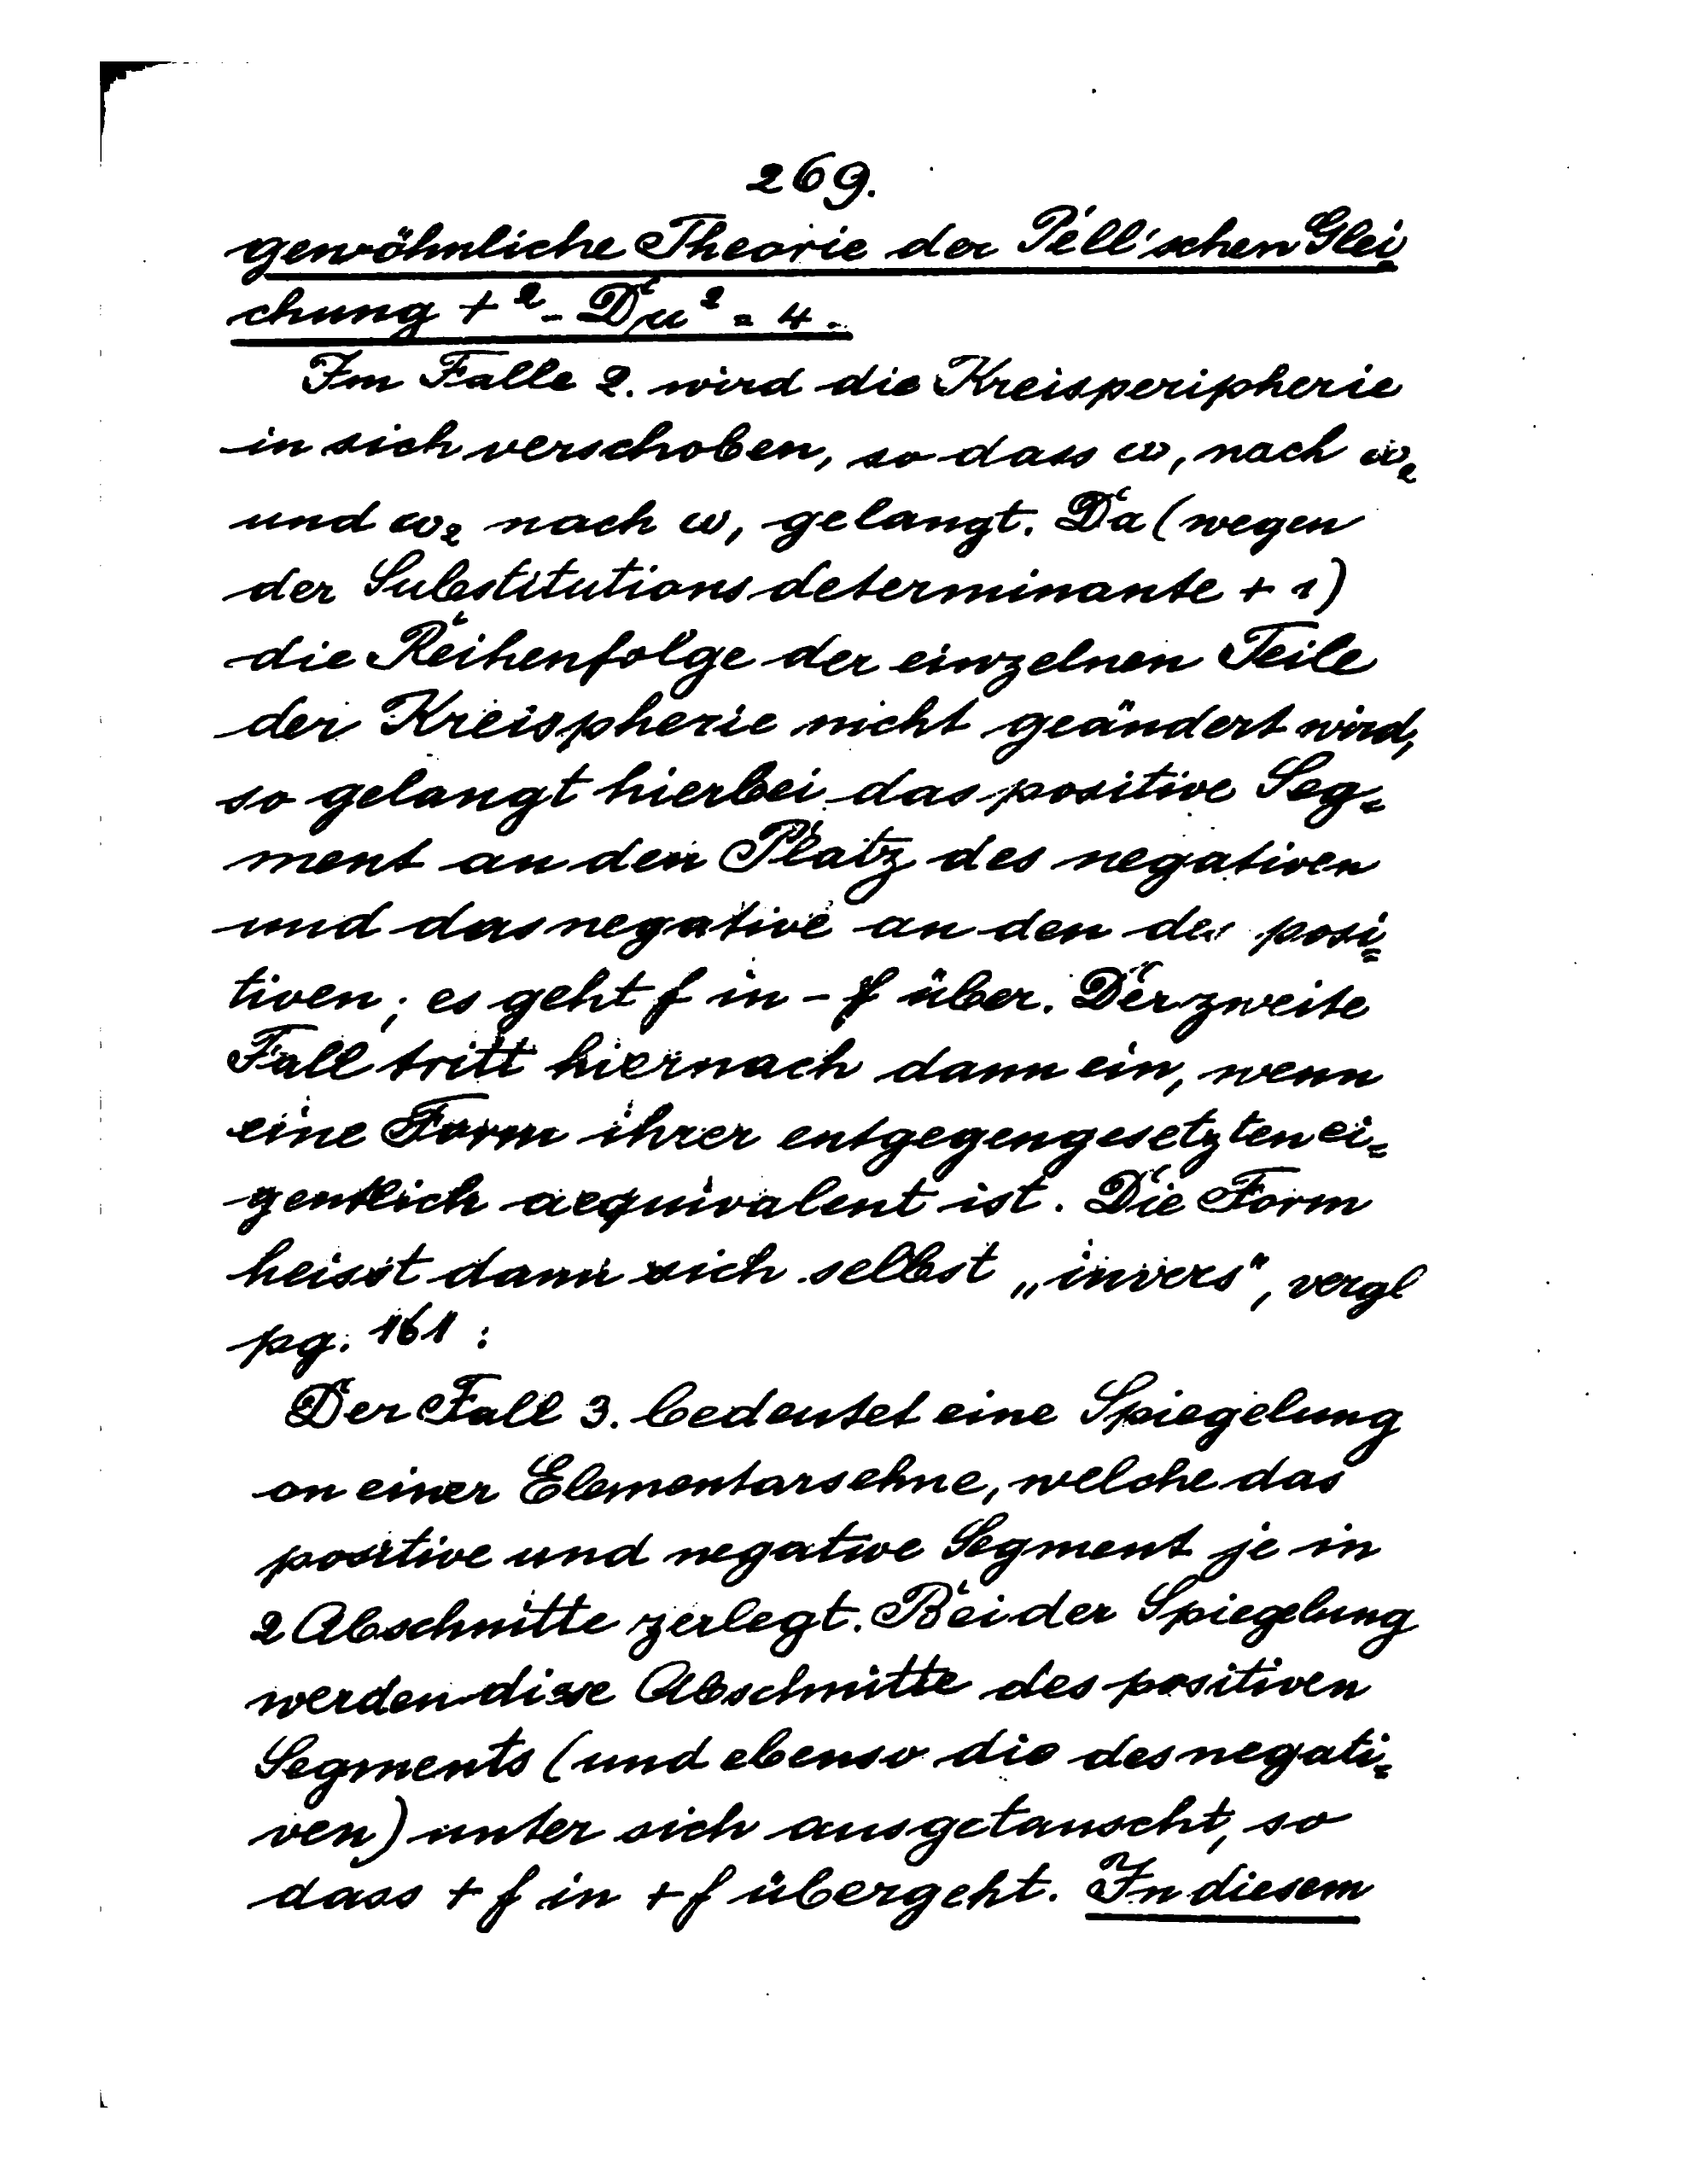 269.
gewöhnliche Theorie der Pell'schen Glei=
chung t² - Du² = 4.
Im Falle 2. wird die Kreisperipherie
in sich verschoben, so dass ω₁ nach ω₂
und ω₂ nach ω₁ gelangt. Da (wegen
der Substitutionsdeterminante + 1)
die Reihenfolge der einzelnen Teile
der Kreispherie nicht geändert wird,
so gelangt hierbei das positive Seg=
ment an den Platz des negativen
und das negative an den des posi=
tiven; es geht f in - f über. Der zweite
Fall tritt hiernach dann ein, wenn
eine Form ihrer entgegengesetzten ei=
gentlich aequivalent ist. Die Form
heisst dann sich selbst „invers", vergl
pg. 161:
Der Fall 3. bedeutet eine Spiegelung
an einer Elementarsehne, welche das
positive und negative Segment je in
2 Abschnitte zerlegt. Bei der Spiegelung
werden diese Abschnitte des positiven
Segments (und ebenso die des negati=
ven) unter sich ausgetauscht, so
dass + f in + f übergeht. In diesem